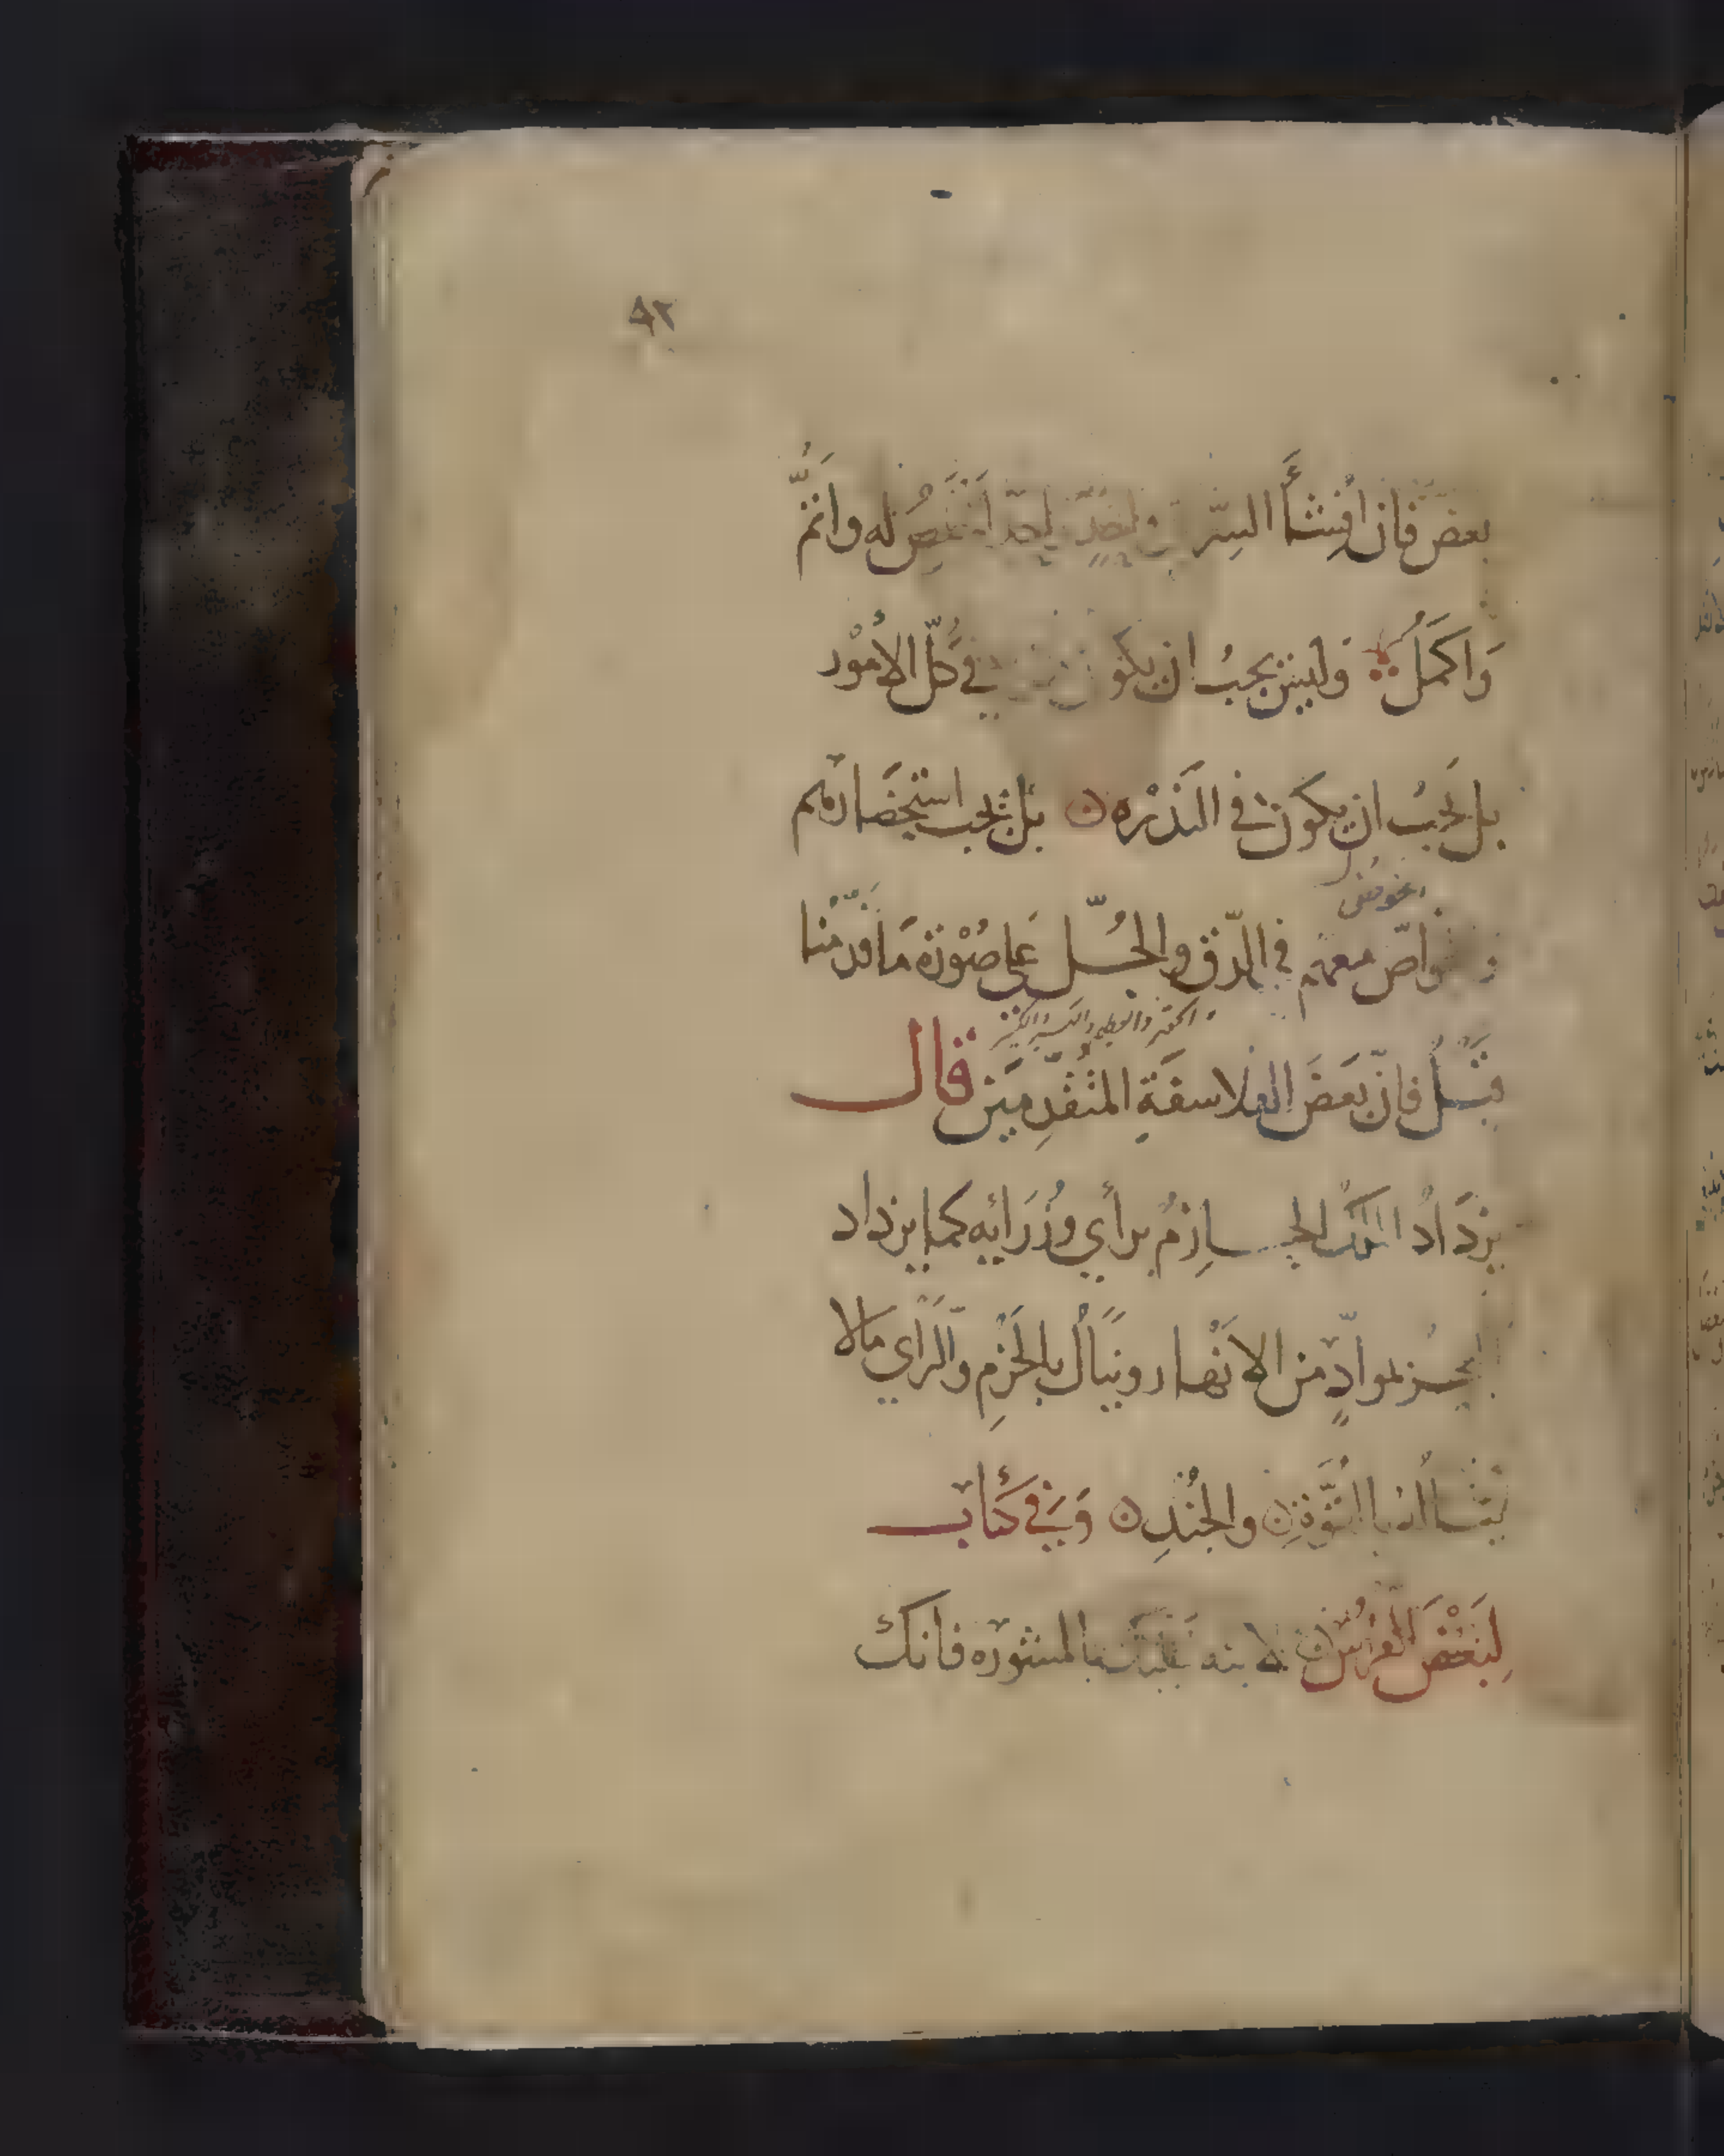 ٩٢
بعض فان افشأ السر له واتم
وَاكمَلُ وليس يجبُ ان يكون في كلّ الامُور
بل يَجبُ ان يكون في النَذرْه بل يجب استحضارهم
يخوض
معهم في الدّق والجُلّ على صُوْرَة مَا قدّمنا
الحقير والعظيم
قبل فانّ بَعضَ الفلاسفَةِ المتقدِّمين قال
يزدَادُ الملك الحازمُ برأي وُزَرَائِه كما يزداد
البحر بموادٍّ من الانهار وينَالُ بالحَزمِ والرأي مَالا
بالقُوَّةِ والجُندِ وَفي كتاب
لِبَعْضِ الفُرْس لابنه عليك بالمشورَه فانك